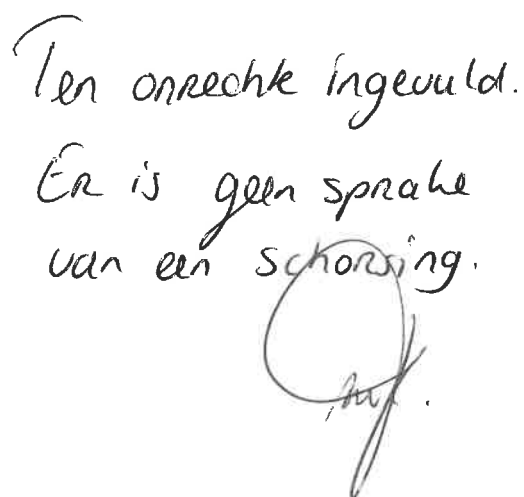 Ten onrechte ingevuld.
Er is geen sprake
van een schorsing.